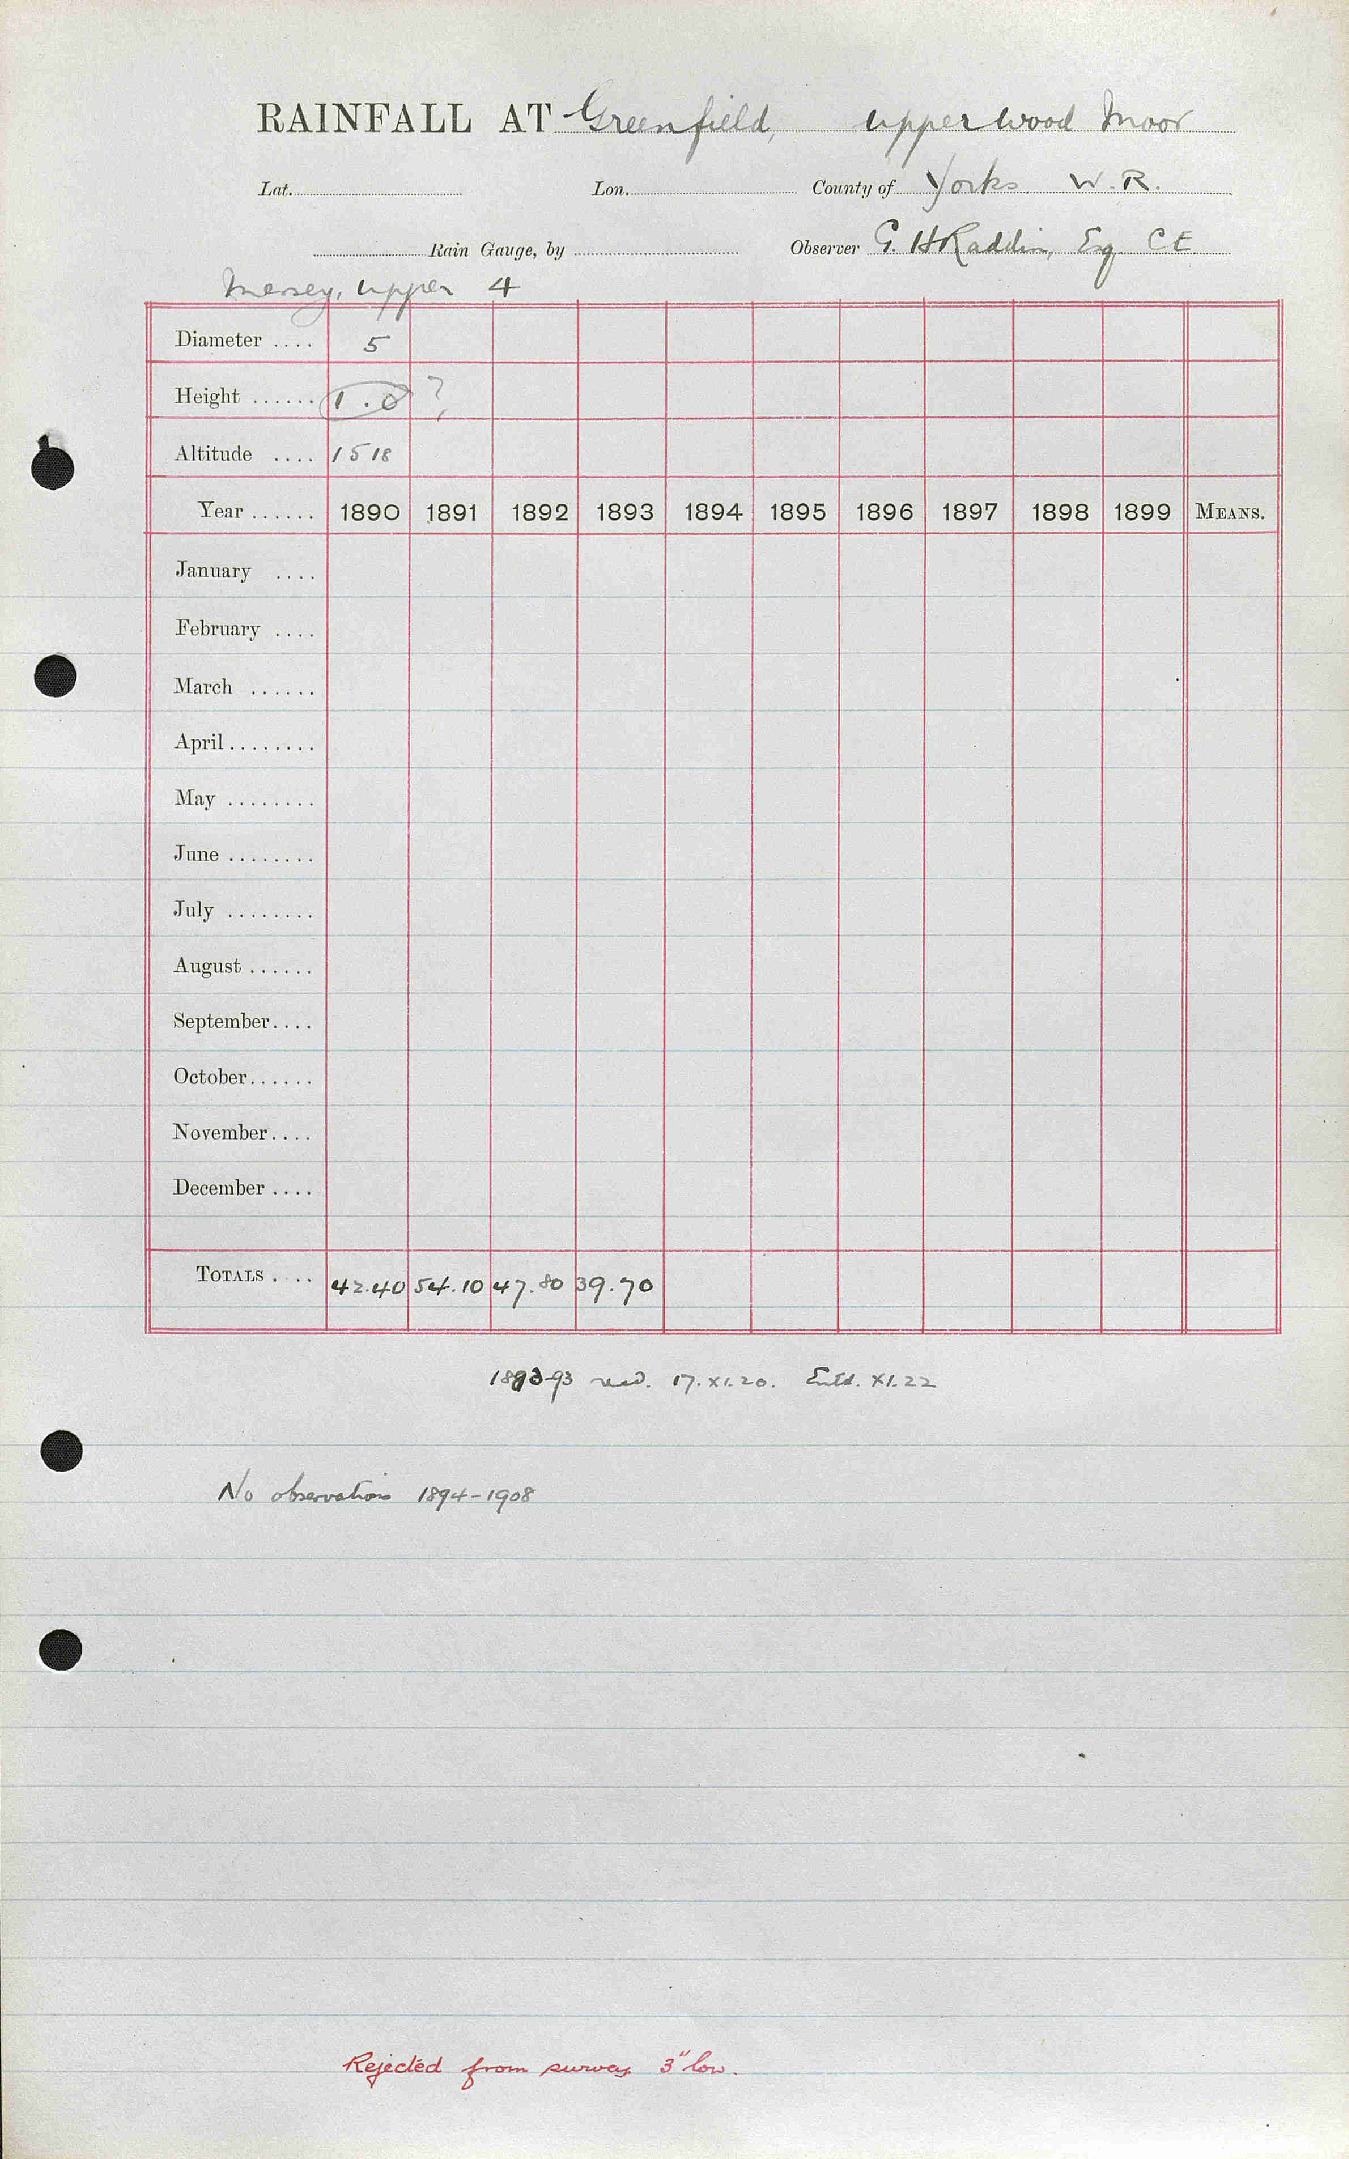 RAINFALL AT Greenfield, upperwood Moor
Lat. Lon. County of Yorks W. R.
Rain Gauge, by Observer G. H. Raddin, Esq C E
Mersey, upper 4
Diameter .... 5
Height ...... 1.0 ?
Altitude .... 1518
Year ...... 1890 1891 1892 1893 1894 1895 1896 1897 1898 1899 MEANS.
January ....
February ....
March ......
April ........
May ........
June ........
July ........
August ......
September ....
October ......
November ....
December ....
TOTALS .... 42.40 54.10 47.80 39.70
1890-93 recd. 17.XI.20. Entd. XI.22
No observations 1894-1908
Rejected from survey 3" low.